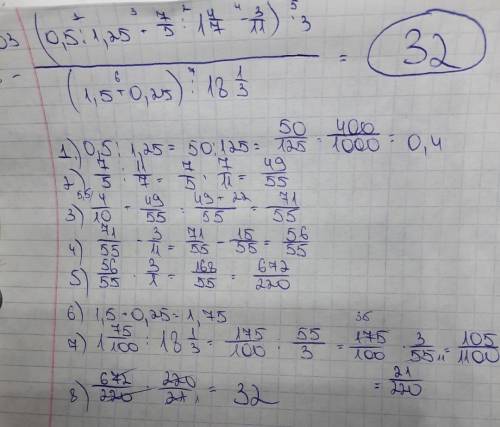 03 (0,5 : 1,25 + 7/5 : 1 4/7 - 3/11) · 3
(1,5 + 0,25) : 18 1/3 = 32
1) 0,5 : 1,25 = 50 : 125 = 50/125 = 400/1000 = 0,4
2) 7/5 : 11/7 = 7/5 · 7/11 = 49/55
3) 4/10 + 49/55 = 49+22/55 = 71/55
4) 71/55 - 3/11 = 71/55 - 15/55 = 56/55
5) 56/55 · 3/1 = 168/55 = 672/220
6) 1,5 + 0,25 = 1,75
7) 1 75/100 : 18 1/3 = 175/100 : 55/3 = 175/100 · 3/55 = 105/1100
= 21/220
8) 672/220 · 220/21 = 32